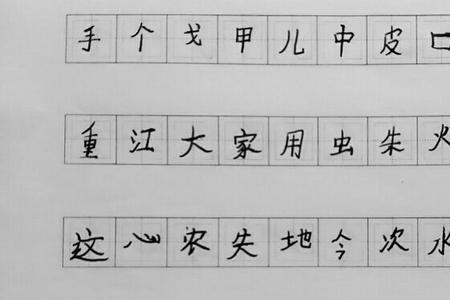 手个戈甲儿中皮口
重江大家用虫朱火
这心农失地今次水